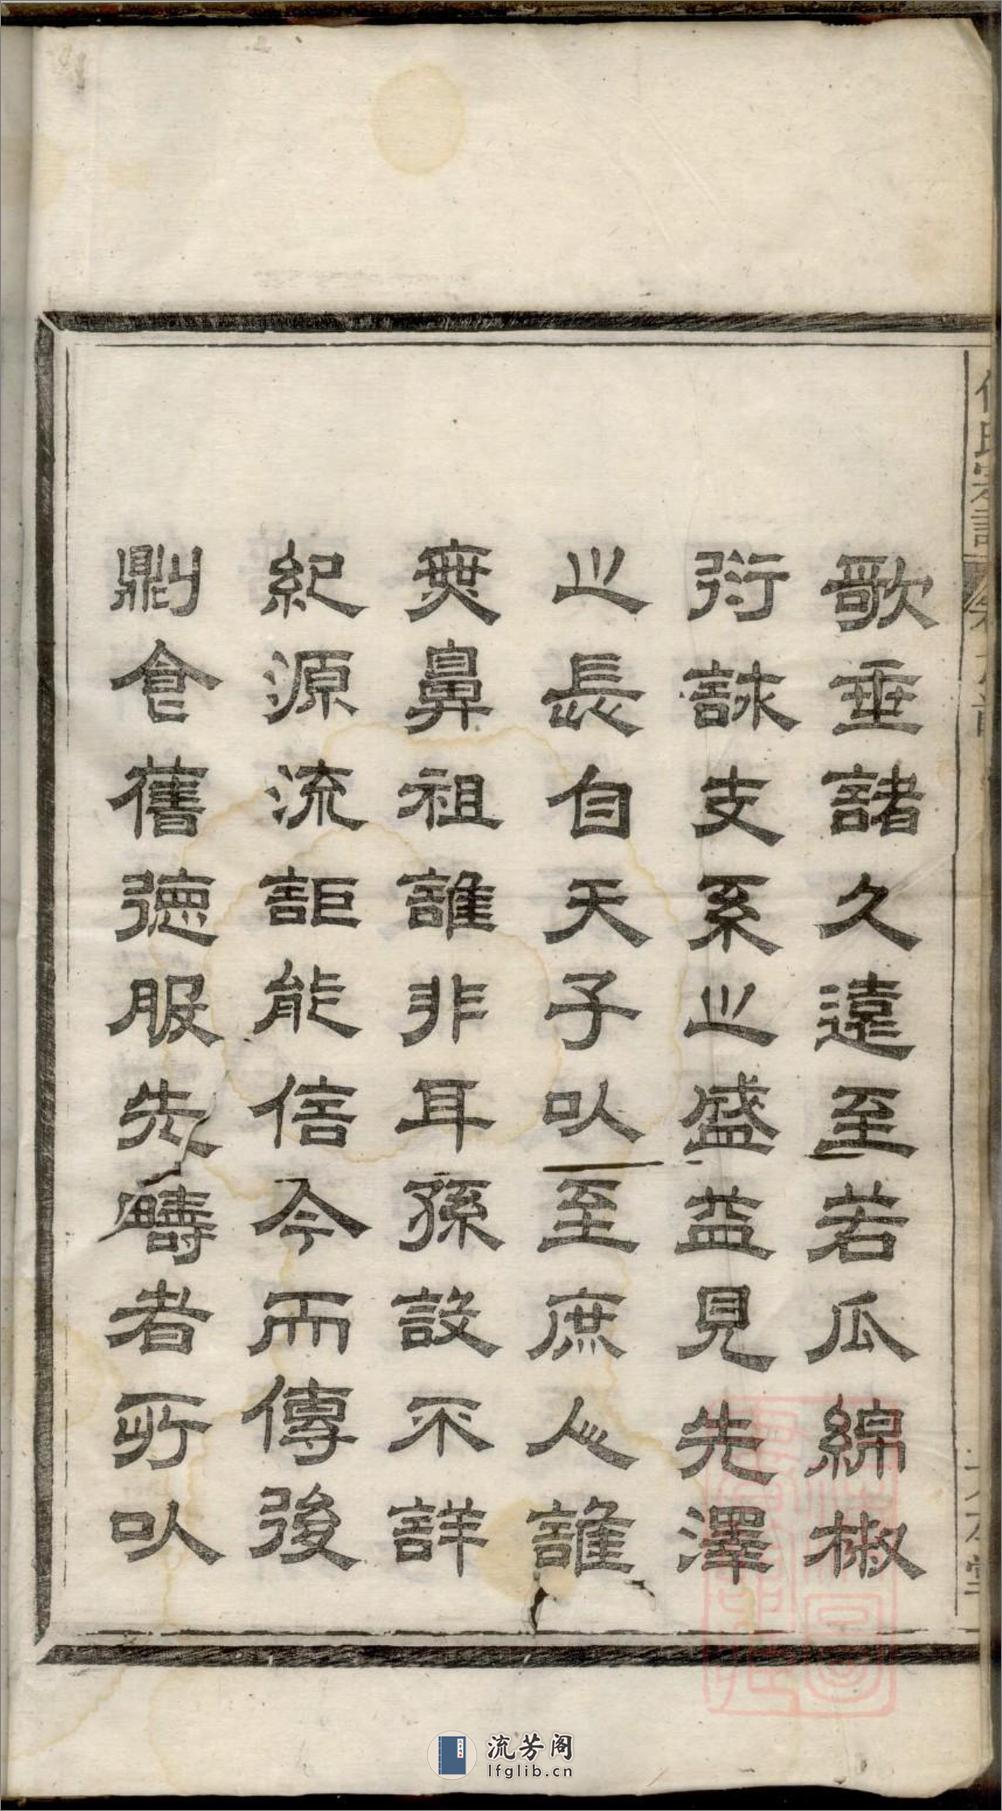 歌垂諸久遠至若瓜綿椒
衍詠支系之盛益見先澤
之長自天子以至庶人誰
無鼻祖誰非耳孫設不詳
紀源流詎能信今而傳後
鼎食舊德服先疇者所以
流芳阁
lfglib.cn